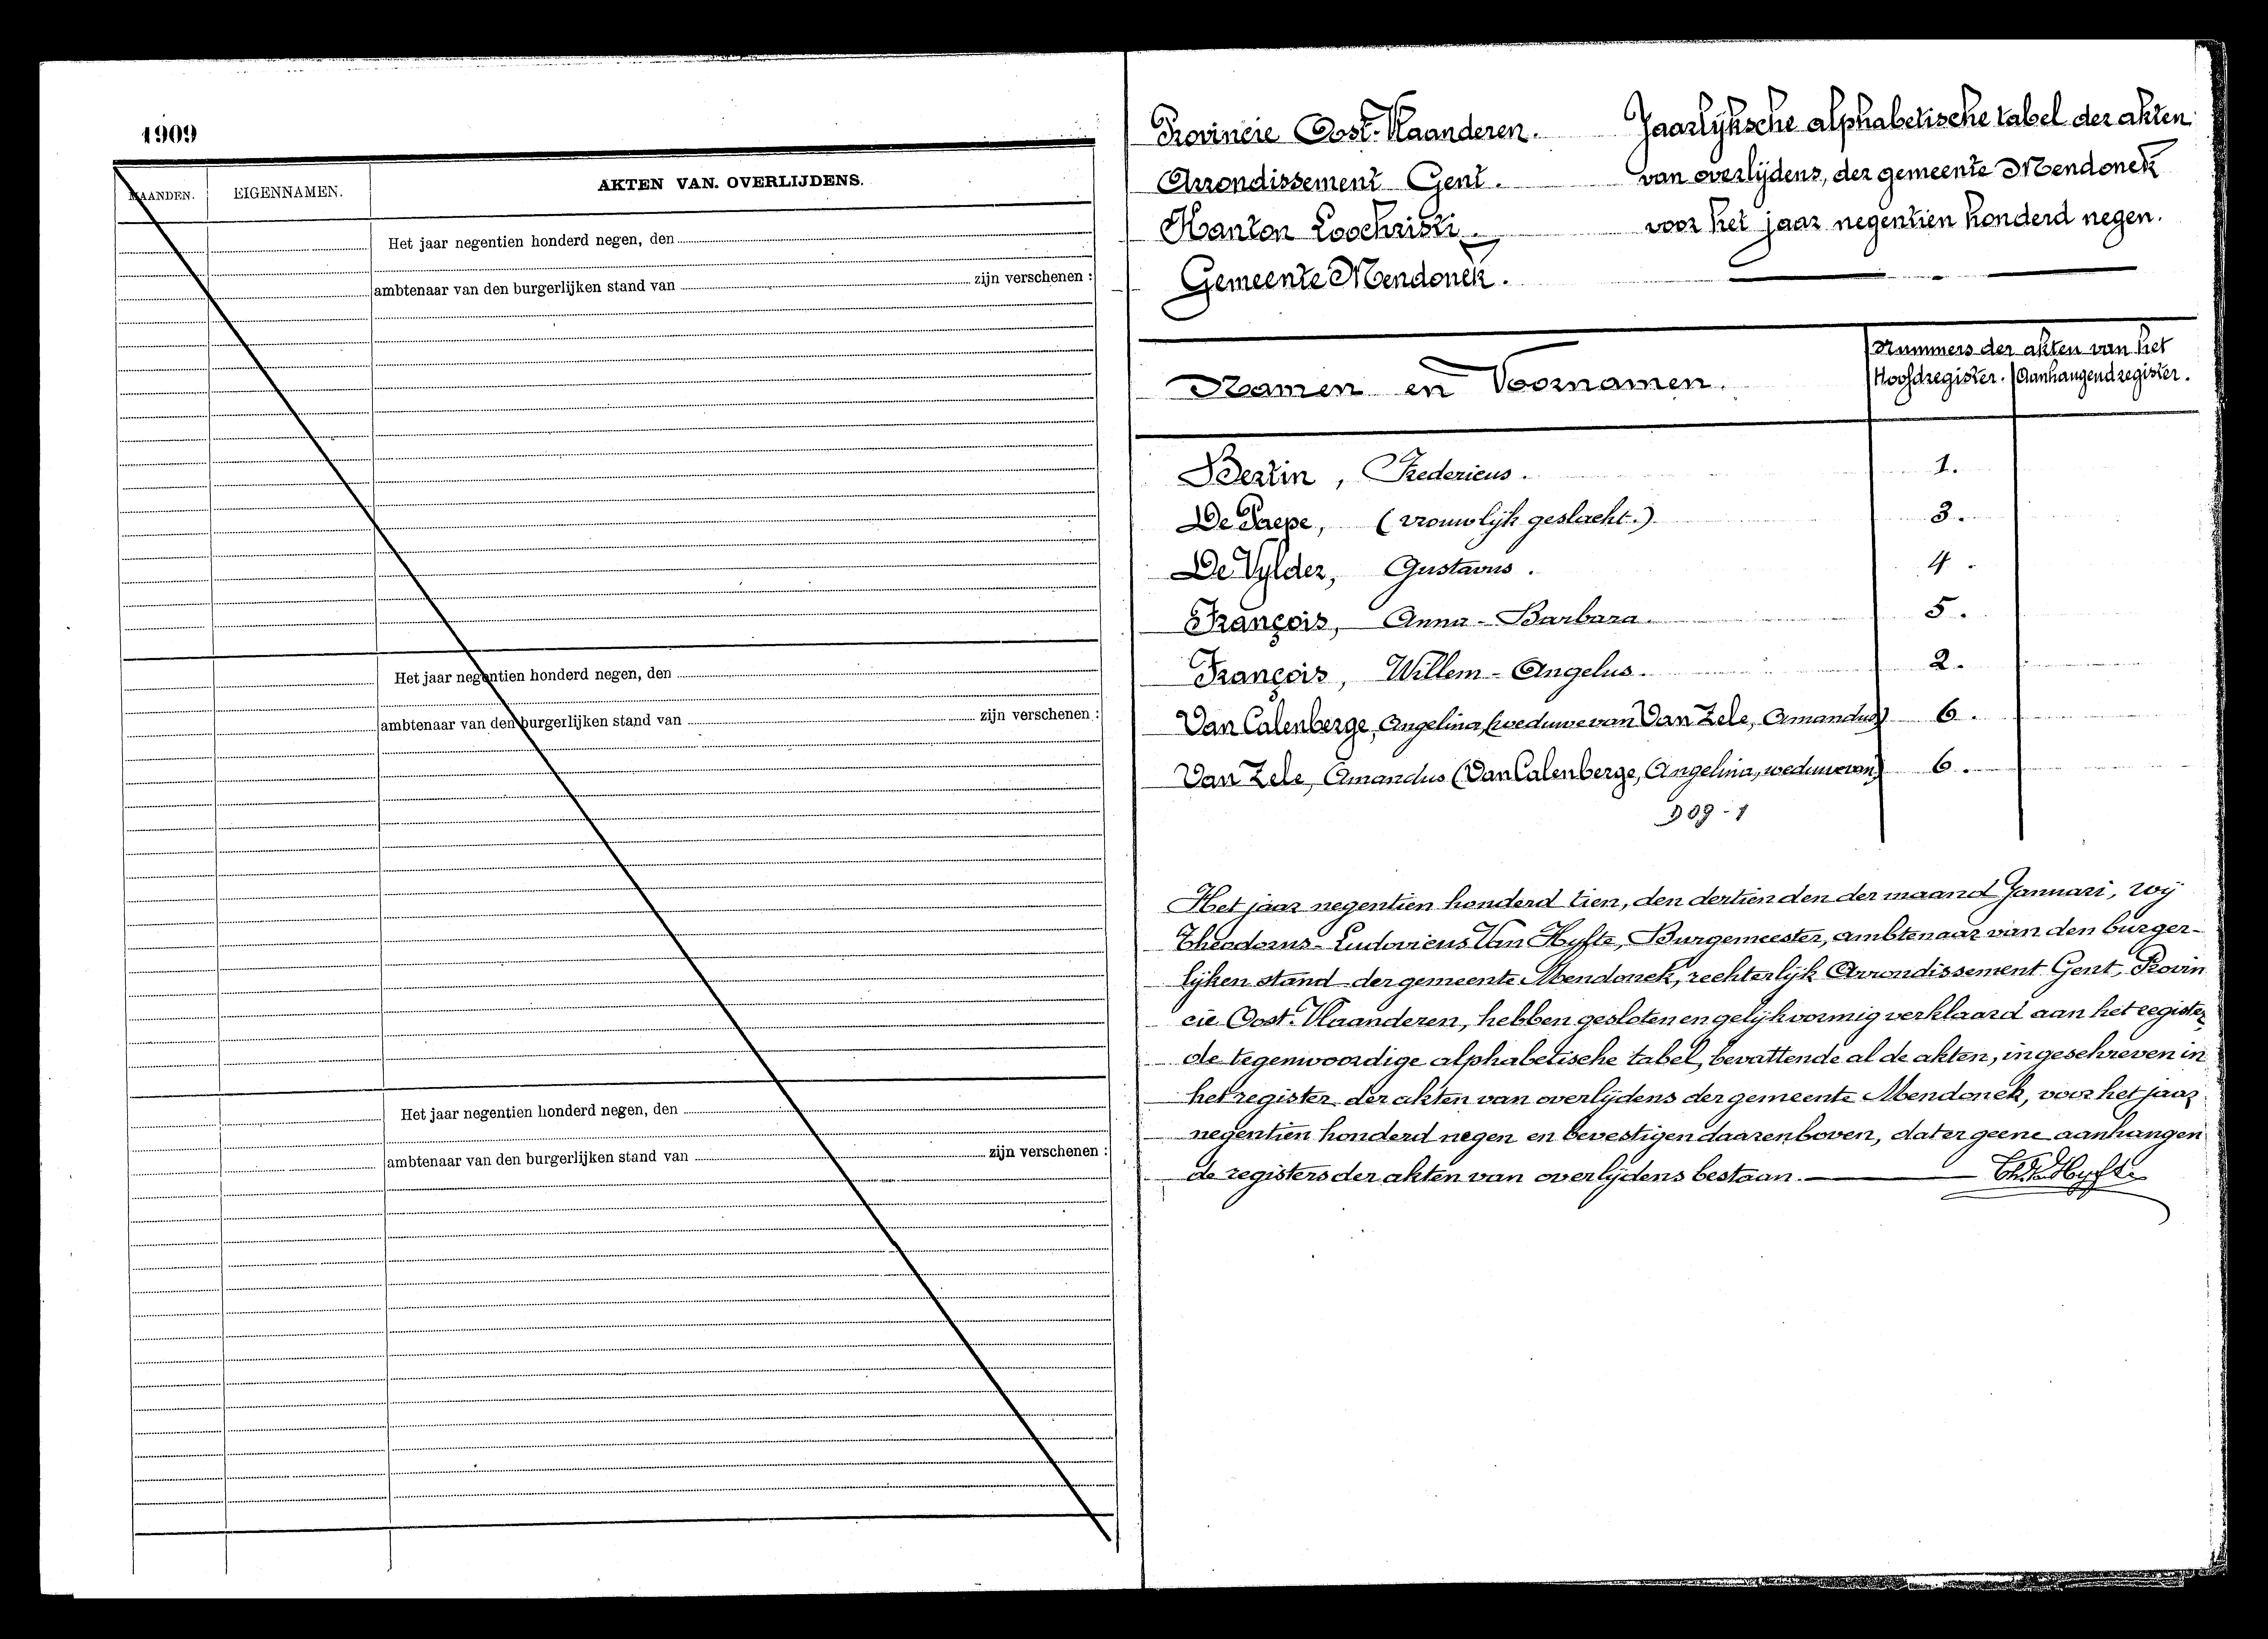 1909
MAANDEN.
EIGENNAMEN.
AKTEN VAN OVERLIJDENS.
Het jaar negentien honderd negen, den
ambtenaar van den burgerlijken stand van zijn verschenen :
Het jaar negentien honderd negen, den
ambtenaar van den burgerlijken stand van zijn verschenen :
Het jaar negentien honderd negen, den
ambtenaar van den burgerlijken stand van zijn verschenen :
Provincie Oost-Vlaanderen.
Arrondissement Gent.
Kanton Loochristi.
Gemeente Mendonck.
Jaarlijksche alphabetische tabel der akten
van overlijdens, der gemeente Mendonck
voor het jaar negentien honderd negen.
Namen en Voornamen.
Nummers der akten van het
Hoofdregister. Aanhangendregister.
Bertin, Fredericus. 1.
De Paepe, (vrouwlijk geslacht.) 3.
De Vylder, Gustavus. 4.
François, Anna-Barbara. 5.
François, Willem-Angelus. 2.
Van Calenberge, Angelina, (weduwe van Van Zele, Amandus) 6.
Van Zele, Amandus (Van Calenberge, Angelina, weduwe van) 6.
309-1
Het jaar negentien honderd tien, den dertienden der maand Januari, Wij
Theodorus-Ludovicus Van Hyfte, Burgemeester, ambtenaar van den burger-
lijken stand der gemeente Mendonck, rechterlijk Arrondissement Gent, Provin
cie Oost-Vlaanderen, hebben gesloten en gelijkvormig verklaard aan het register
de tegenwoordige alphabetische tabel, bevattende al de akten, ingeschreven in
het register der akten van overlijdens der gemeente Mendonck, voor het jaar
negentien honderd negen en bevestigen daarenboven, dat er geene aanhangen
de registers der akten van overlijdens bestaan. Th. Van Hyfte